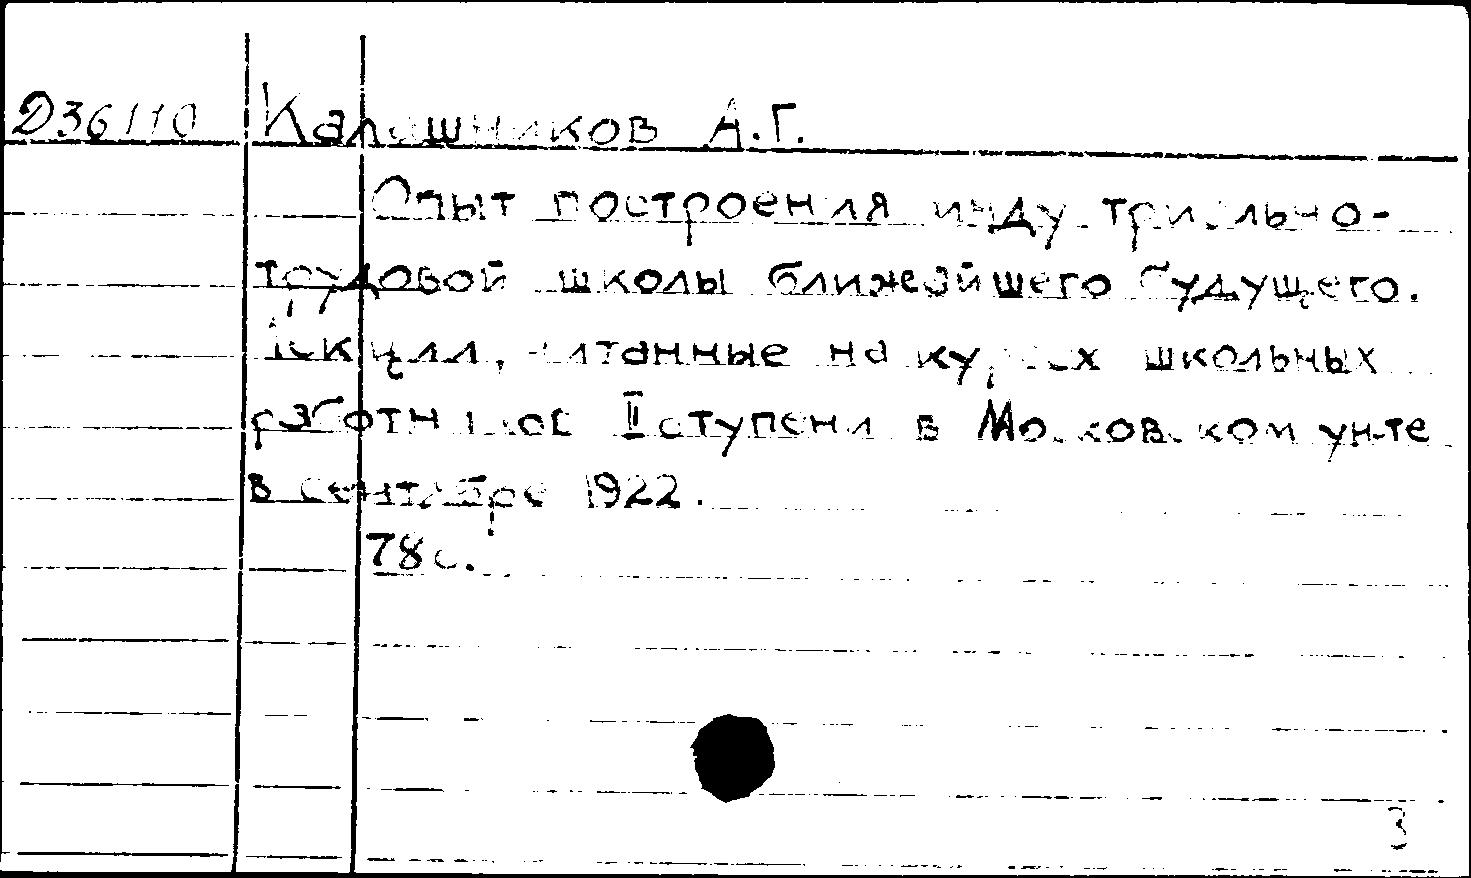 D36110 Калашников А.Г.
Опыт построения индустриально-
трудовой школы ближайшего будущего.
Лекции, читанные на курсах школьных
работников II ступени в Московском ун-те
в сентябре 1922.
78с.
3